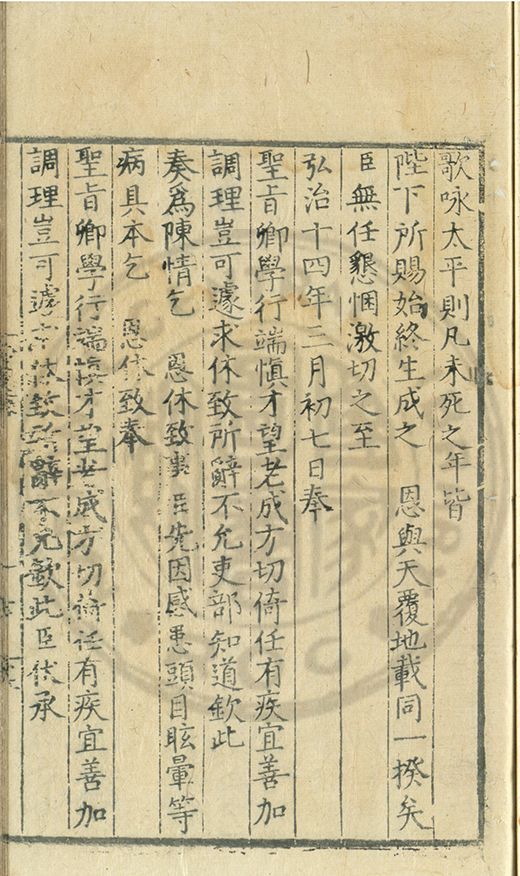 歌咏太平則凡未死之年皆
陛下所賜始終生成之　恩與天覆地載同一揆矣
臣無任懇悃激切之至
弘治十四年三月初七日奉
聖旨卿學行端慎才望老成方切倚任有疾宜善加
調理豈可遽求休致所辭不允吏部知道欽此
奏為陳情乞　恩休致事臣先因感患頭目眩暈等
病具本乞　恩休致奉
聖旨卿學行端慎才望老成方切倚任有疾宜善加
調理豈可遽求休致所辭不允欽此臣伏承